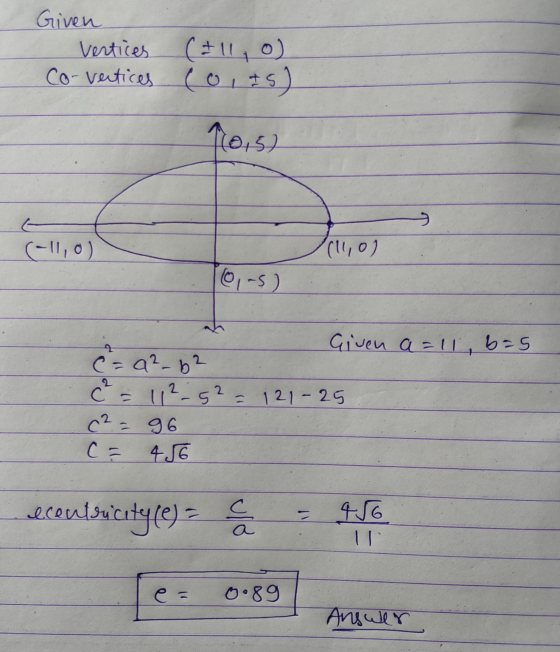 Given
Vertices (±11, 0)
Co-vertices (0, ±5)
(0,5)
(-11,0)
(11,0)
(0,-5)
Given a=11, b=5
c² = a² - b²
c² = 11² - 5² = 121 - 25
c² = 96
c = 4√6
ecentricity(e) = c/a = 4√6/11
e = 0.89
Answer